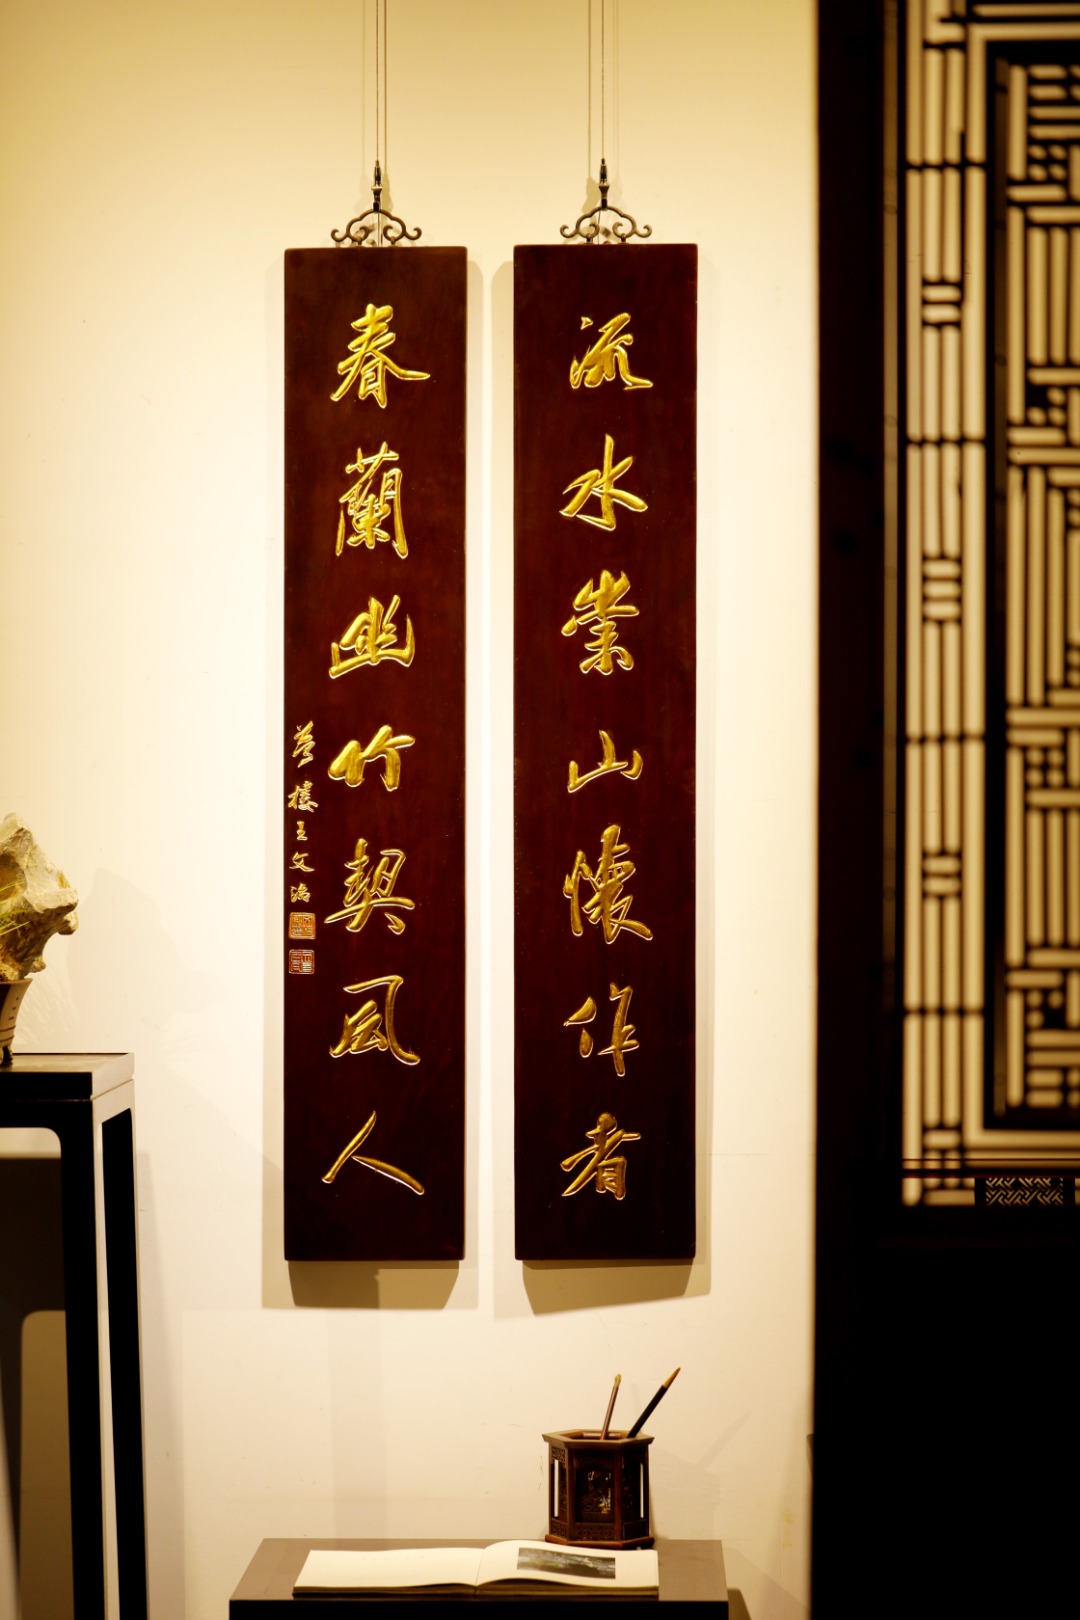 流水崇山懷作者
春蘭幽竹契風人
夢樓王文治